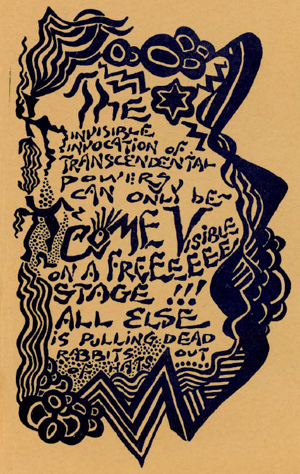 THE
INVISIBLE
INVOCATION OF
TRANSCENDENTAL
POWERS
CAN ONLY BE-
COME VISIBLE
ON A FREEEEEEE
STAGE !!!
ALL ELSE
IS PULLING DEAD
RABBITS OUT
OF HATS